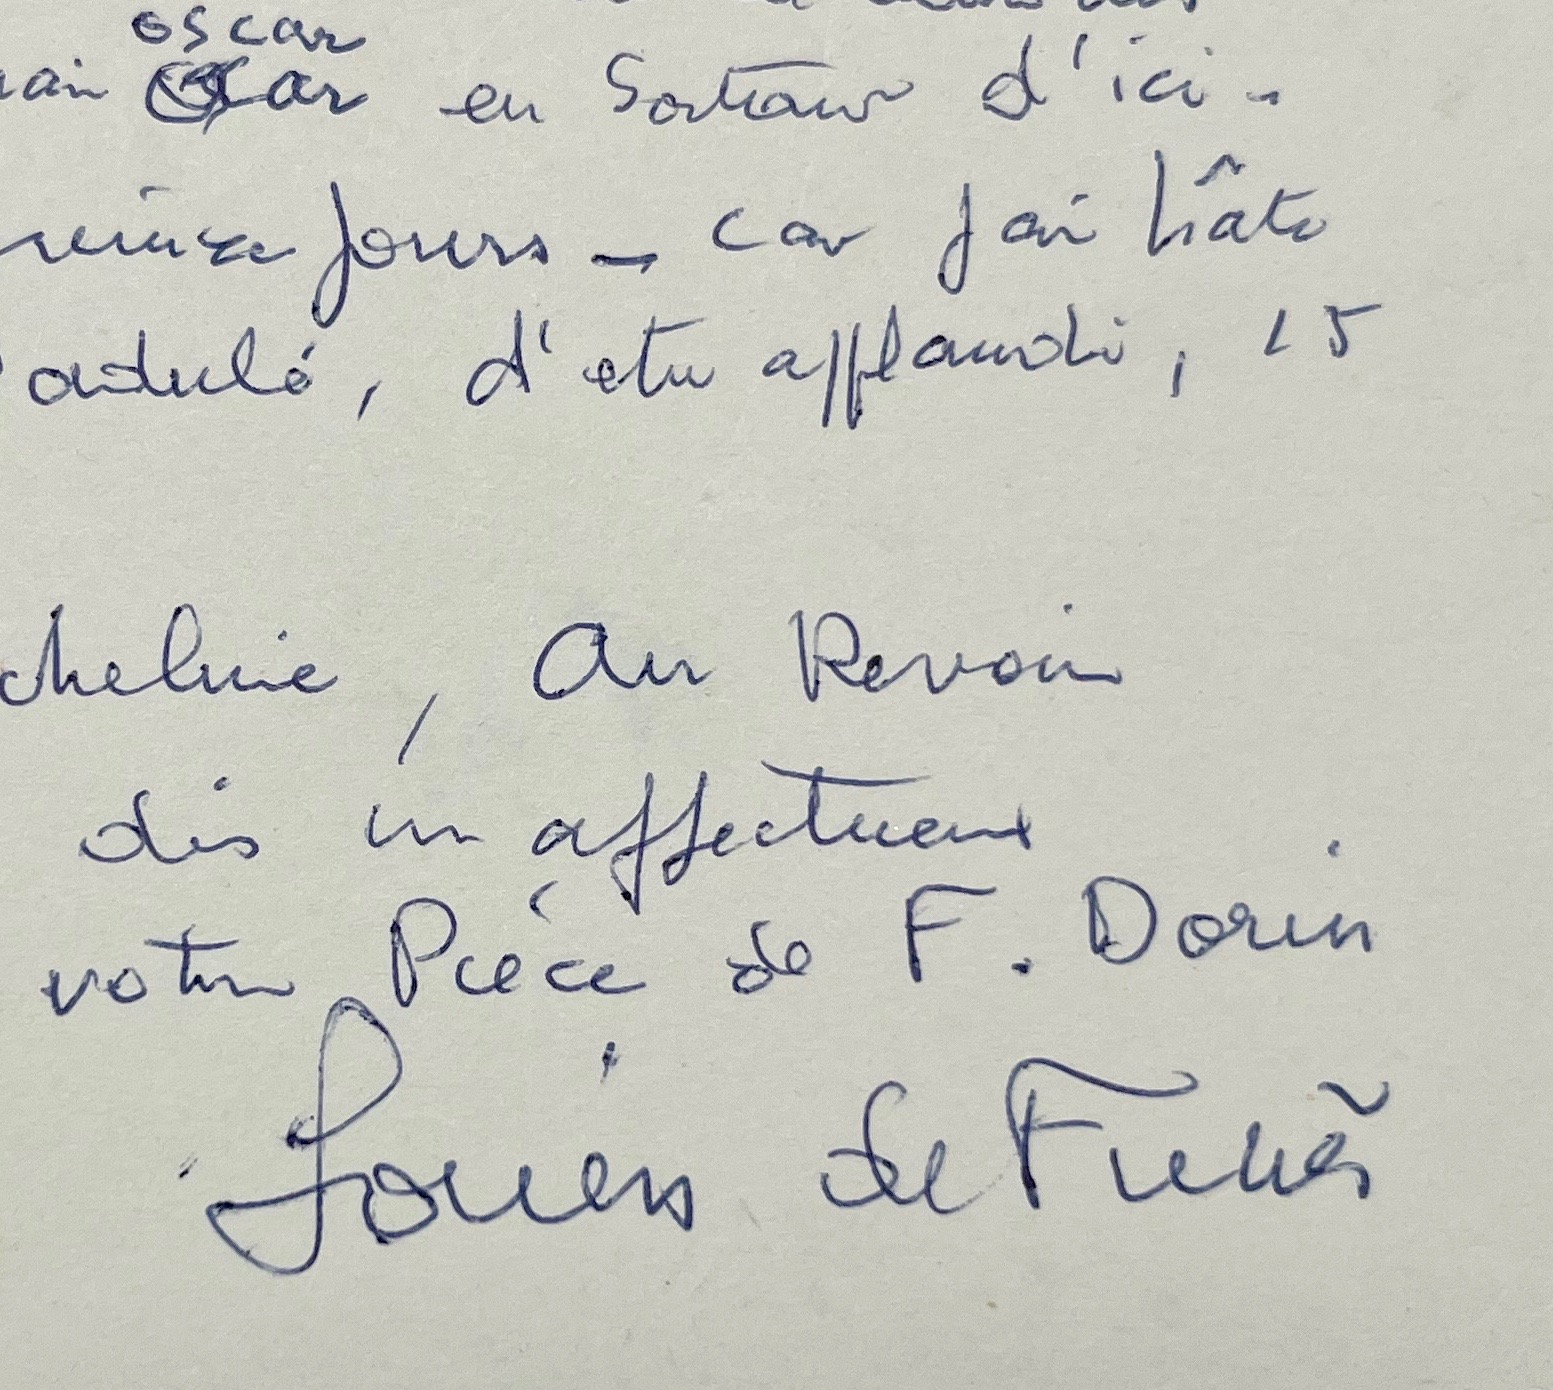 oscar
oscar en Sortant d'ici -
jours - car j'ai hâte
adulé, d'etre applaudi, 15
cheline, Au Revoir
dis un affectueux
votre Pièce de F. Dorin
Louis de Funès